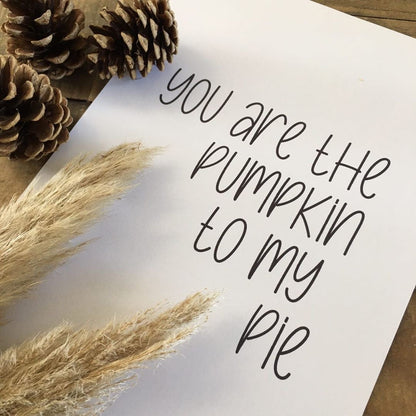 you are the
pumpkin
to my
pie